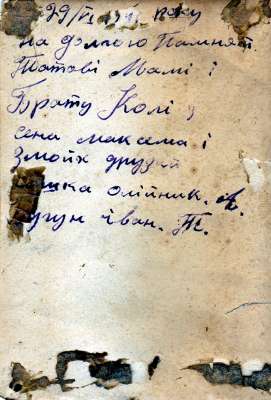 29/VI 194 року
на долгою Памняті
Татові Мамі і
Брату Колі
сена максема і
Змоїх друзей
шка олійник. А.
гун іван. Т.